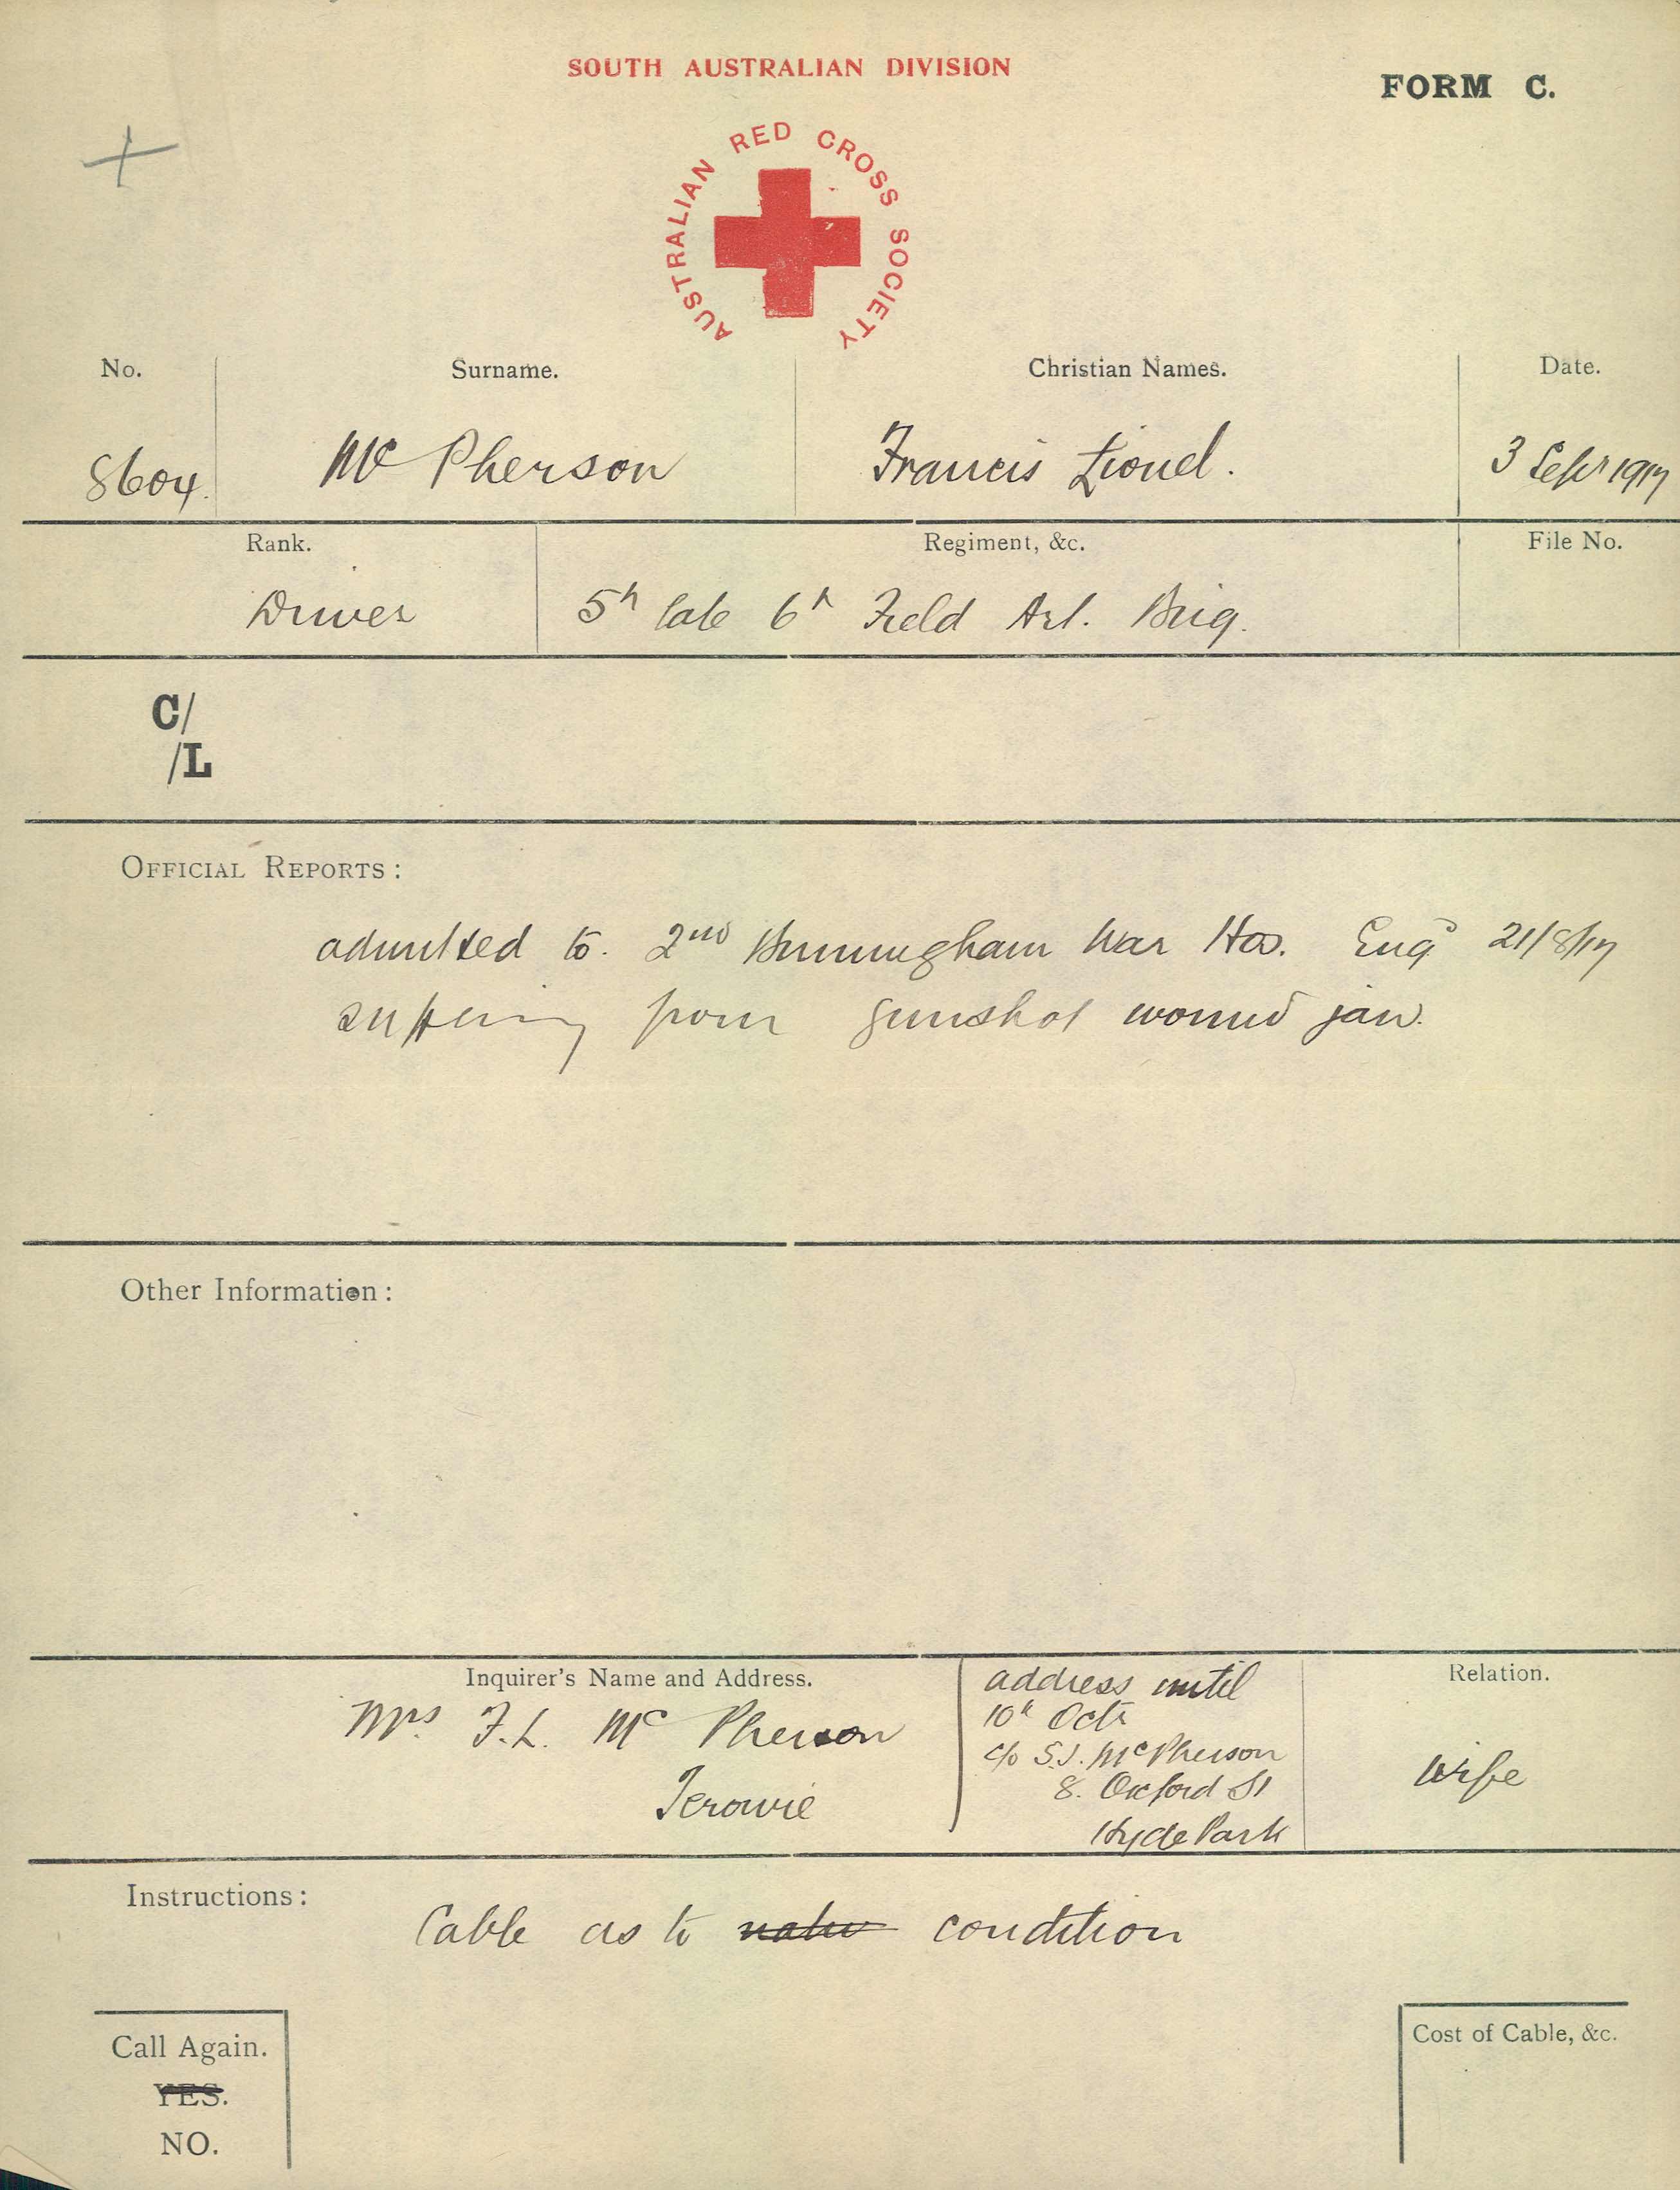 SOUTH AUSTRALIAN DIVISION
FORM C.
AUSTRALIAN RED CROSS SOCIETY
No. Surname. Christian Names. Date.
8604. Mc Pherson Francis Lionel. 3 Sept 1917
Rank. Regiment, &c. File No.
Driver 5th late 6th Field Art. Brig.
C/
/L
OFFICIAL REPORTS:
admitted to. 2nd Birmingham War Hos. Engd 21/8/17
suffering from gunshot wound jaw.
Other Information:
Inquirer's Name and Address.
Mrs F.L. Mc Pherson
Terowie
address until
10th Octr
c/o S.J. McPherson
8. Oxford St
Hyde Park
Relation.
wife
Instructions:
Cable as to natu condition
Call Again.
YES.
NO.
Cost of Cable, &c.